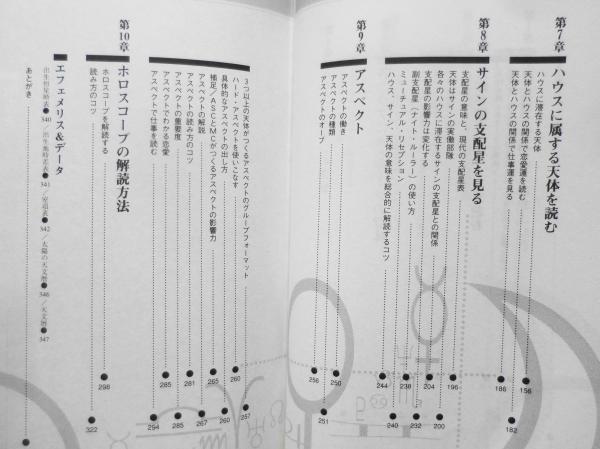 第7章 ハウスに属する天体を読む
ハウスに滞在する天体 ● 156
天体とハウスの関係で恋愛運を読む ● 182
天体とハウスの関係で仕事運を見る ● 186
第8章 サインの支配星を見る
支配星の意味と、現代の支配星表 ● 196
天体はサインの実働部隊 ● 200
各々のハウスに滞在するサインの支配星との関係 ● 204
支配星の影響力は変化する ● 232
副支配星（ナイト・ルーラー）の使い方 ● 238
ミューチュアル・リセプション ● 240
ハウス、サイン、天体の意味を総合的に解読するコツ ● 244
第9章 アスペクト
アスペクトの働き ● 250
アスペクトの種類 ● 251
アスペクトのオーブ ● 256
3つ以上の天体がつくるアスペクトのグループフォーマット ● 257
ハード・アスペクトを使いこなす ● 260
具体的なアスペクトの出し方 ● 260
補足／ASCとMCがつくるアスペクトの影響力 ● 265
アスペクトの解説 ● 267
アスペクトの読み方のコツ ● 281
アスペクトの重要度 ● 285
アスペクトでわかる恋愛 ● 285
アスペクトで仕事を読む ● 294
第10章 ホロスコープの解読方法
ホロスコープを解読する ● 298
読み方のコツ ● 322
■エフェメリス＆データ
出生恒星時表●340／出生地時差表●341／室項表●342／太陽の天文暦●346／天文暦●347
あとがき ●